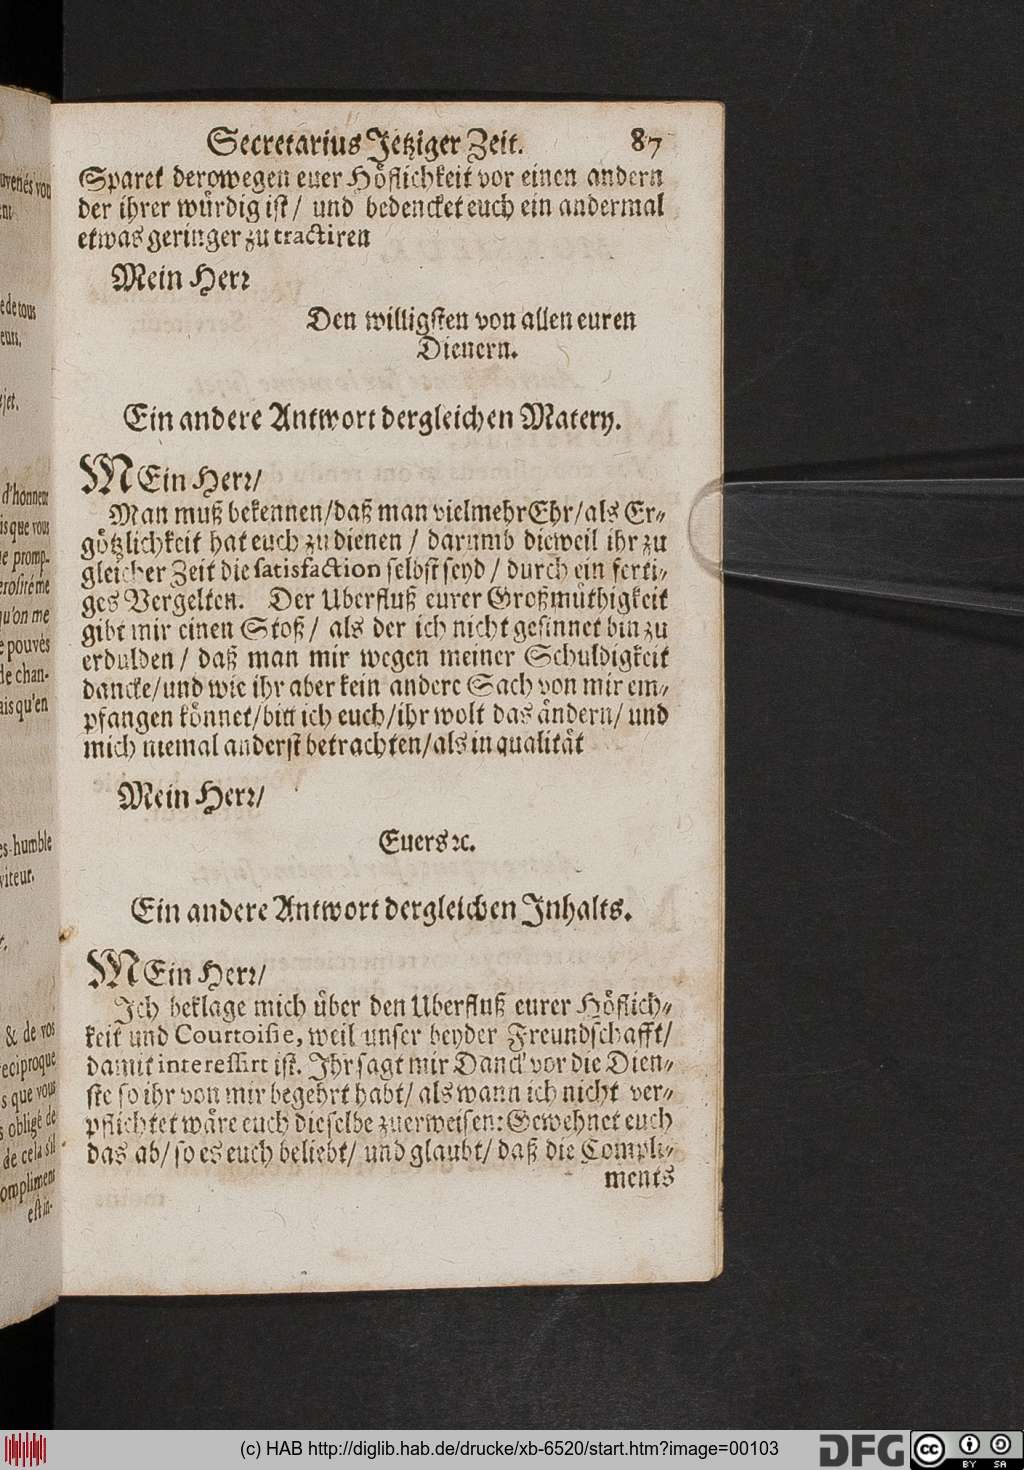 Secretarius Jetziger Zeit. 87
Sparet derowegen euer Höflichkeit vor einen andern
der ihrer würdig ist / und bedencket euch ein andermal
etwas geringer zu tractiren
Mein Herr
Den willigsten von allen euren
Dienern.
Ein andere Antwort dergleichen Matery.
MEin Herr/
Man muß bekennen/daß man vielmehr Ehr/als Er-
götzlichkeit hat euch zu dienen / darumb dieweil ihr zu
gleicher Zeit die satisfaction selbst seyd / durch ein ferti-
ges Vergelten. Der Uberfluß eurer Großmüthigkeit
gibt mir einen Stoß / als der ich nicht gesinnet bin zu
erdulden / daß man mir wegen meiner Schuldigkeit
dancke/und wie ihr aber kein andere Sach von mir em-
pfangen könnet/bitt ich euch/ihr wolt das ändern/ und
mich niemal anderst betrachten/als in qualität
Mein Herr/
Euers ꝛc.
Ein andere Antwort dergleichen Inhalts.
MEin Herr/
Ich beklage mich über den Uberfluß eurer Höflich-
keit und Courtoisie, weil unser beyder Freundschafft/
damit interessirt ist. Ihr sagt mir Danck vor die Dien-
ste so ihr von mir begehrt habt/ als wann ich nicht ver-
pflichtet wäre euch dieselbe zuerweisen: Gewehnet euch
das ab/ so es euch beliebt/ und glaubt/ daß die Compli-
ments
uveriés vou
e de tous
eurs,
jet.
d'honneur
is que vous
e promp-
erosité me
qu'on me
e pouvés
de chan-
ais qu'en
es-humble
viteur.
& de vos
reciproque
s que vous
s obligé de
de cela s'il
compliment
est in-
(c) HAB http://diglib.hab.de/drucke/xb-6520/start.htm?image=00103
DFG
cc
BY SA